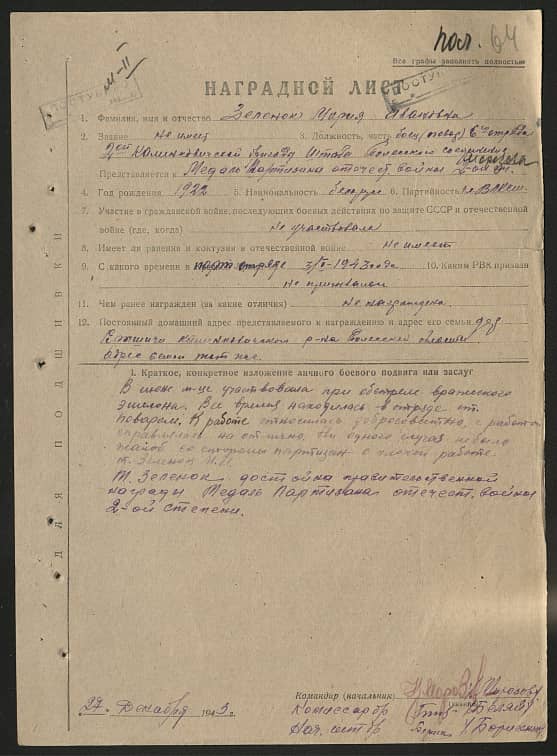 пол. 64
Все графы заполнять полностью
НАГРАДНОЙ ЛИСТ
1. Фамилия, имя и отчество Зеленок Мария Ивановна
2. Звание не имеет 3. Должность, часть боец (повар) 6го отряда
Калинковичской бригады Штаба Полесского соединения
Представляется к Медаль Партизана отечест. войны 2-ой ст.
4. Год рождения 1922 5. Национальность белорус 6. Партийность чл. ВЛКСМ
7. Участие в гражданской войне, последующих боевых действиях по защите СССР и отечественной
войне (где, когда) не участвовала
8. Имеет ли ранения и контузии в отечественной войне не имеет
9. С какого времени в парт. отряде 1943 года 10. Каким РВК призван
не призвалась
11. Чем ранее награжден (за какие отличия) не награждена
12. Постоянный домашний адрес представляемого к награждению и адрес его семьи дер
Калинковичского р-на Полесской области
адрес семьи тот же.
I. Краткое, конкретное изложение личного боевого подвига или заслуг
В июне м-це участвовала при обстреле вражеского
эшелона. Все время находилась в отряде от.
поваром. К работе относилась добросовестно, с работой
справлялась на отлично, ни одного случая не было
жалоб со стороны партизан о плохой работе
т. Зеленок М.И.
Т. Зеленок достойна правительственной
награды Медаль Партизана отечест. войны
2-ой степени.
ДЛЯ ПОДШИВКИ
Командир (начальник)
27 Декабря 1943 г.
Комиссар
Нач. штаба